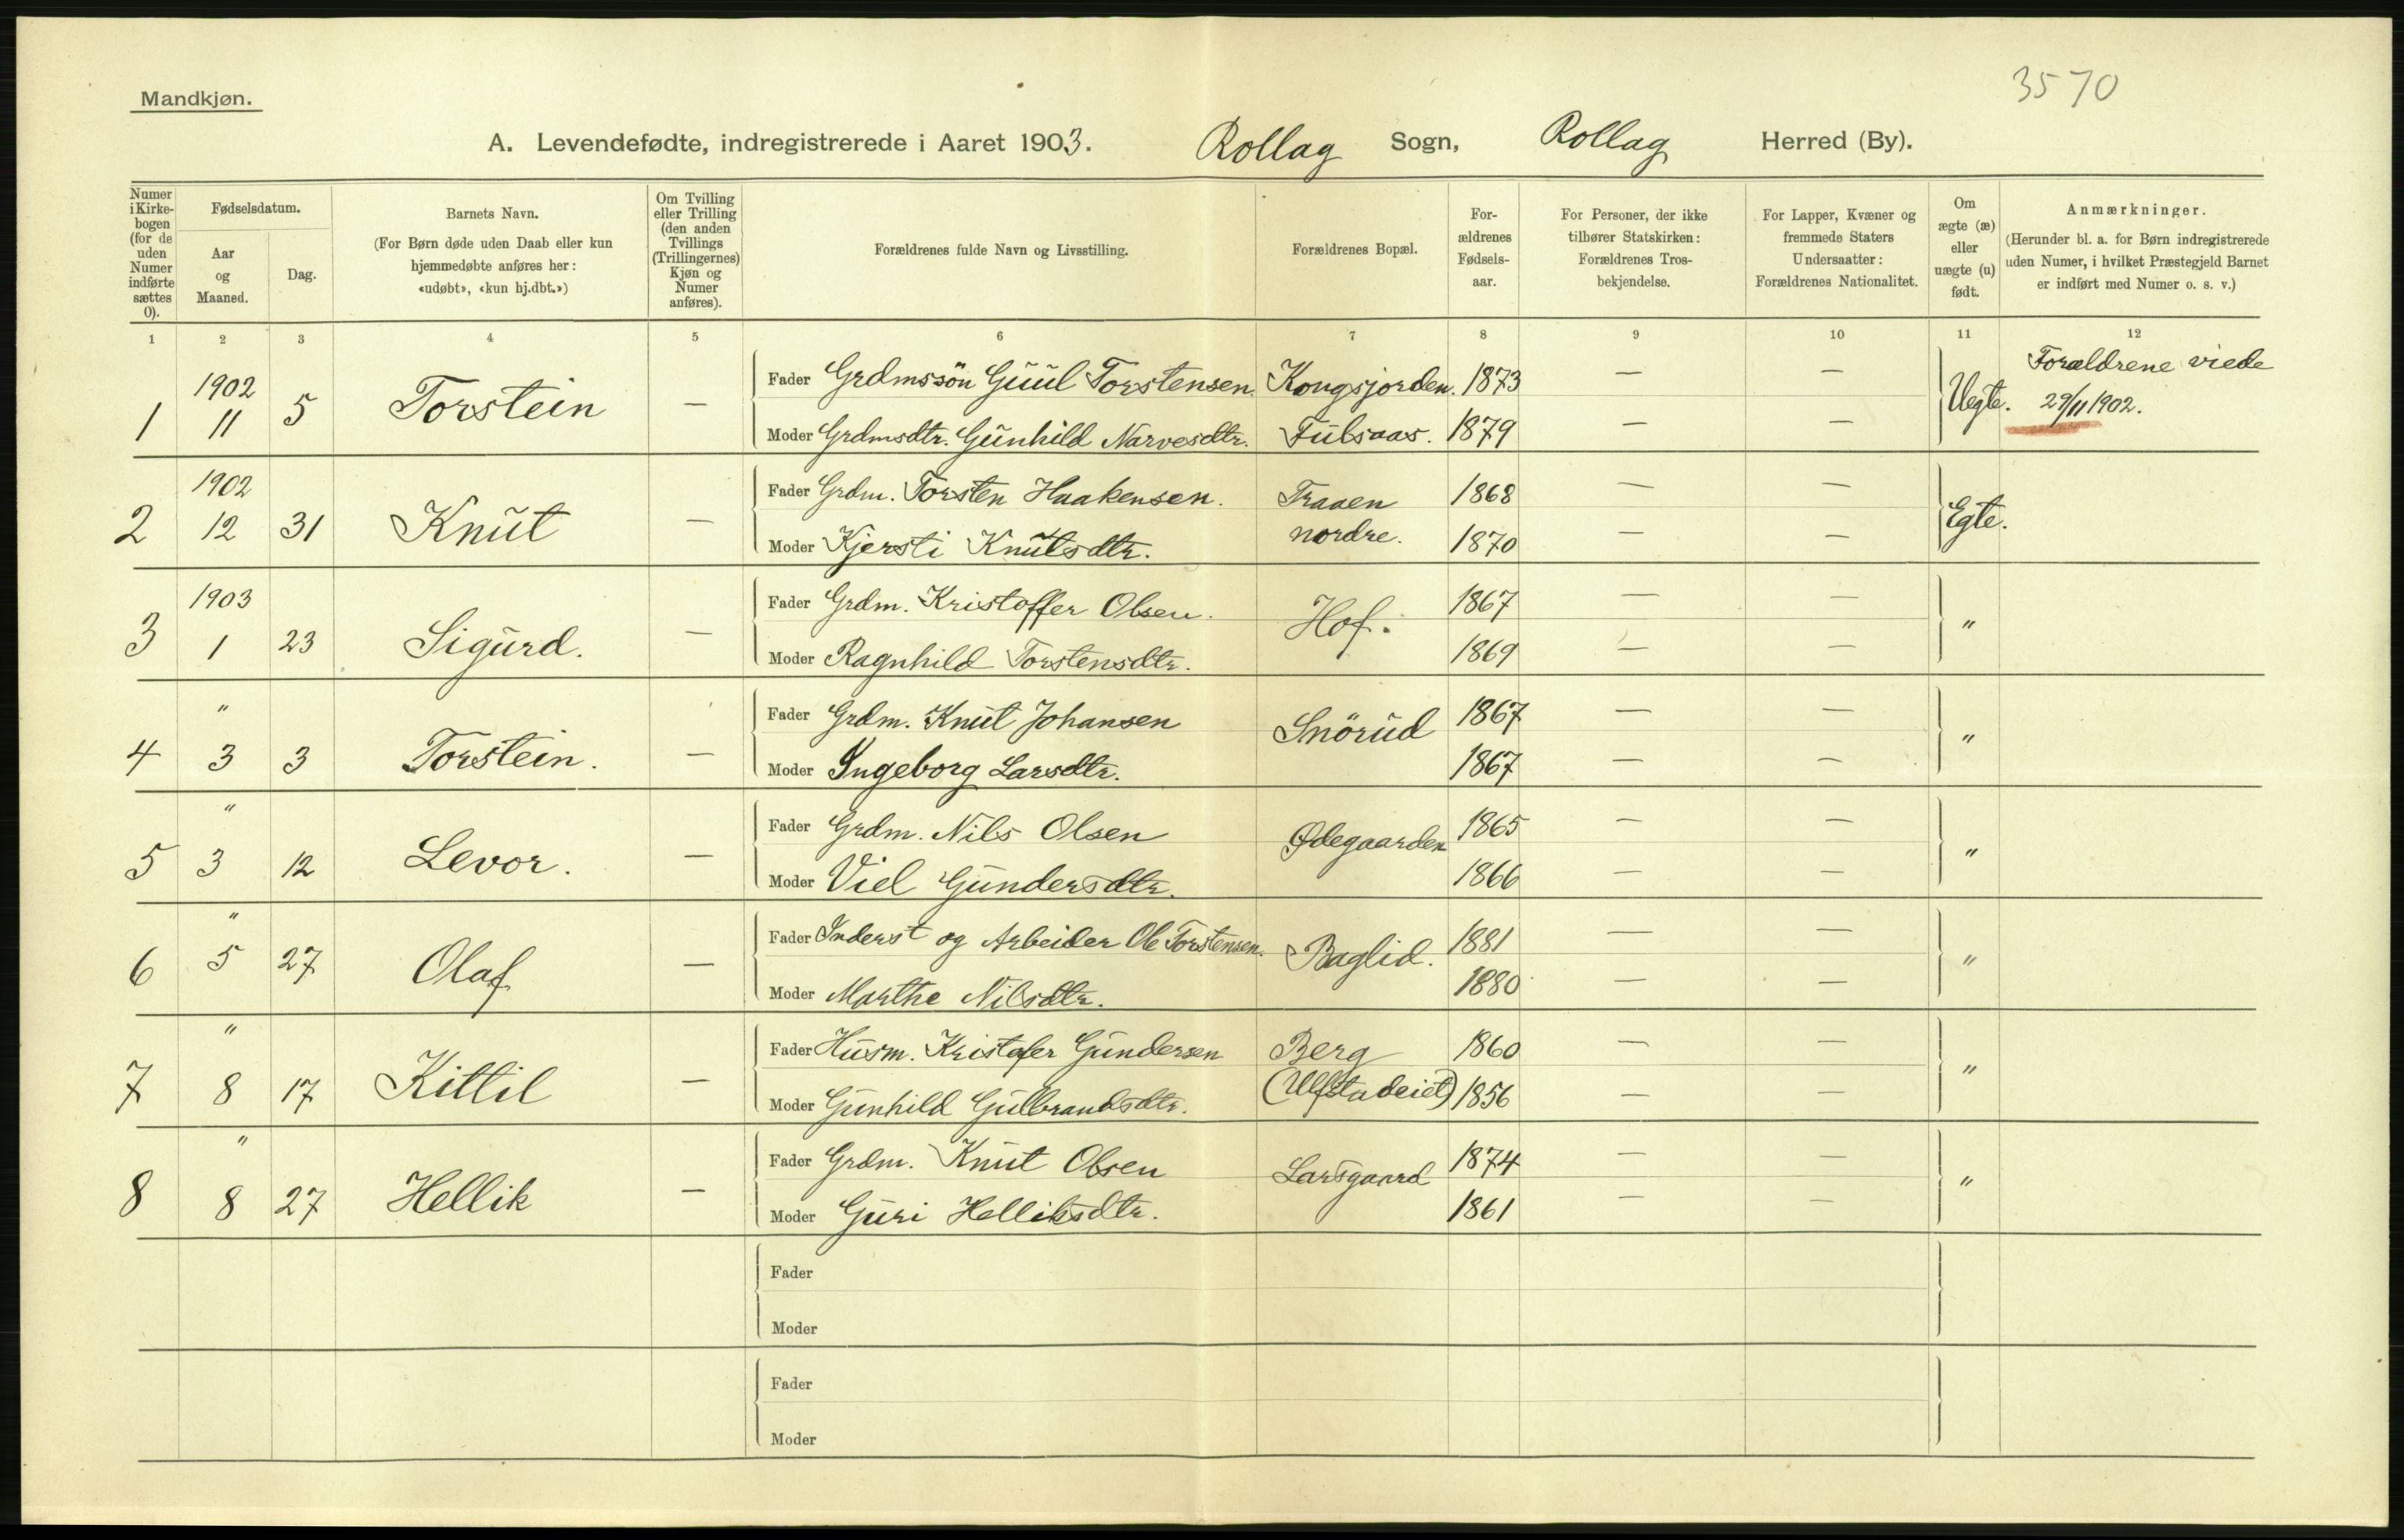 3570
Mandkjøn.
A. Levendefødte, indregistrerede i Aaret 1903. Rollag Sogn, Rollag Herred (By).
Numer i Kirkebogen (for de uden Numer indførte sættes 0).
Fødselsdatum.
Aar og Maaned.
Dag.
Barnets Navn.
(For Børn døde uden Daab eller kun hjemmedøbte anføres her: «udøbt», «kun hj.dbt.»)
Om Tvilling eller Trilling (den anden Tvillings (Trillingernes) Kjøn og Numer anføres).
Forældrenes fulde Navn og Livsstilling.
Forældrenes Bopæl.
Forældrenes Fødselsaar.
For Personer, der ikke tilhører Statskirken: Forældrenes Trosbekjendelse.
For Lapper, Kvæner og fremmede Staters Undersaatter: Forældrenes Nationalitet.
Om ægte (æ) eller uægte (u) født.
Anmærkninger.
(Herunder bl. a. for Børn indregistrerede uden Numer, i hvilket Præstegjeld Barnet er indført med Numer o. s. v.)
1 2 3 4 5 6 7 8 9 10 11 12
1 1902 11 5 Torstein — Fader Grdmssön Guul Torstensen. Kongsjorden. 1873 — — Uegte. Forældrene viede 29/11 1902.
Moder Grdmsdtr. Gunhild Narvesdtr. Fulsaas. 1879 — —
2 1902 12 31 Knut — Fader Grdm. Torsten Haakensen. Traaen 1868 — — Egte.
Moder Kjersti Knutsdtr. nordre. 1870 — —
3 1903 1 23 Sigurd. — Fader Grdm. Kristoffer Olsen. Hof. 1867 — — "
Moder Ragnhild Torstensdtr. 1869 — —
4 " 3 3 Torstein. — Fader Grdm. Knut Johansen Snörud 1867 — — "
Moder Ingeborg Larsdtr. 1867 — —
5 " 3 12 Levor. — Fader Grdm. Nils Olsen Ødegaarden 1865 — — "
Moder Viel Gundersdtr. 1866 — —
6 " 5 27 Olaf — Fader Inderst og Arbeider Ole Torstensen. Baglid. 1881 — — "
Moder Marthe Nilsdtr. 1880 — —
7 " 8 17 Kittil — Fader Husm. Kristofer Gundersen Berg 1860 — — "
Moder Gunhild Gulbrandsdtr. (Ulfstadeiet) 1856 — —
8 " 8 27 Hellik — Fader Grdm. Knut Olsen Larsgaard 1874 — — "
Moder Guri Helliksdtr. 1861 — —
Fader
Moder
Fader
Moder